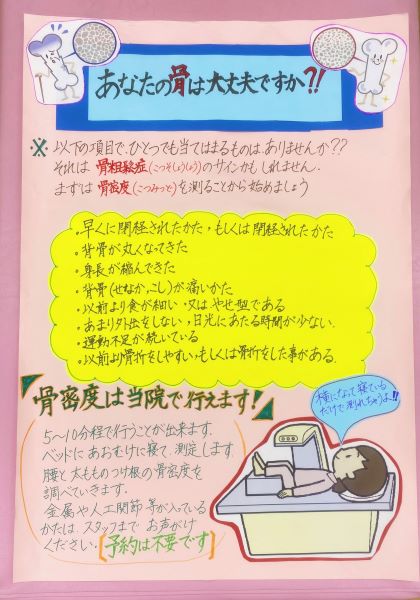 あなたの骨は大丈夫ですか?!
※ 以下の項目で、ひとつでも当てはまるものはありませんか??
それは 骨粗鬆症(こつそしょうしょう)のサインかもしれません.
まずは 骨密度(こつみつど)を測ることから始めましょう
・早くに閉経されたかた,もしくは閉経されたかた
・背骨が丸くなってきた
・身長が縮んできた
・背骨(せなか,こし)が痛いかた
・以前より食が細い,又はやせ型である
・あまり外出をしない,日光にあたる時間が少ない.
・運動不足が続いている
・以前より骨折をしやすい,もしくは骨折をした事がある.
骨密度は当院で行えます!
横になって寝ている
だけで測れちゃうよ!!
5〜10分程で行うことが出来ます.
ベッドにあおむけに寝て,測定します.
腰と太もものつけ根の骨密度を
調べていきます.
金属や人工関節等が入っている
かたは、スタッフまでお声がけ
ください.[予約は不要です]